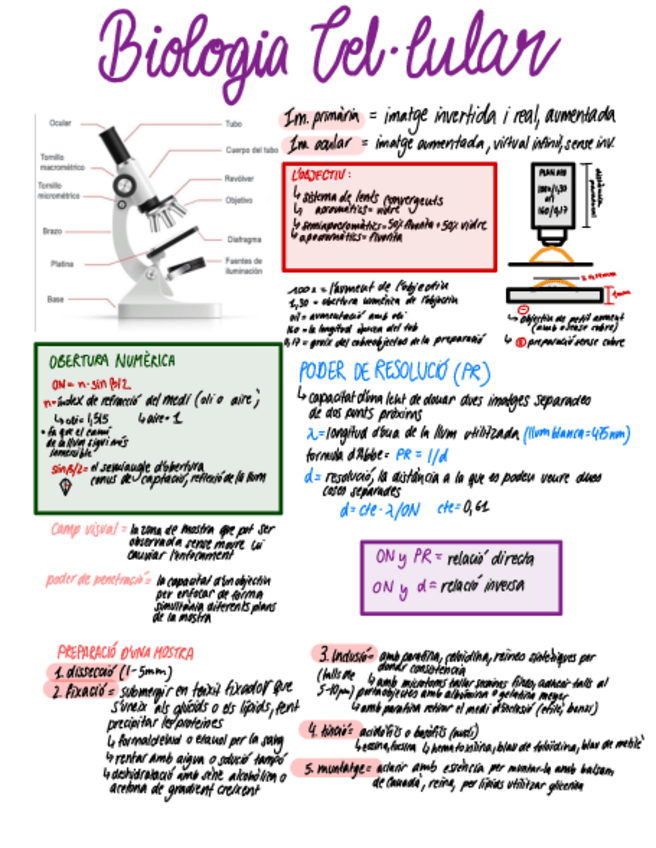 Biologia Cel·lular
Ocular
Tubo
Cuerpo del tubo
Tornillo
macrométrico
Revólver
Tornillo
micrométrico
Objetivo
Brazo
Diafragma
Platina
Fuentes de
iluminación
Base
Im. primària = imatge invertida i real, augmentada
Im. ocular = imatge augmentada, virtual infinit, sense inv.
L'OBJECTIU:
↳ sistema de lents convergents
↳ acromàtics = vidre
↳ semiapocromàtics = 50% fluorita + 50% vidre
↳ apocromàtics = fluorita
PLAN APO
100x/1,30
oil
160/0,17
distància
1mm
↳ objectiu de petit augment
(amb o sense cobre)
↳ preparació sense cobre
100x = l'augment de l'objectiu
1,30 = obertura numèrica de l'objectiu
oil = augmentació amb oli
160 = la longitud òptica del tub
0,17 = gruix del cobreobjectes de la preparació
OBERTURA NUMÈRICA
ON = n · sin β/2
n = índex de refracció del medi (oli o aire)
↳ oli = 1,515 ↳ aire = 1
• fa que el camí
de la llum sigui més
sin β/2 = el semiangle d'obertura
conus de captació, reflexió de la llum
PODER DE RESOLUCIÓ (PR)
↳ capacitat d'una lent de donar dues imatges separades
de dos punts pròxims
λ = longitud d'ona de la llum utilitzada (llum blanca = 475nm)
formula d'Abbe = PR = 1/d
d = resolució, la distància a la que es poden veure dues
coses separades
d = cte · λ/ON cte = 0,61
Camp visual = la zona de mostra que pot ser
observada sense moure ni
canviar l'enfocament
poder de penetració = la capacitat d'un objectiu
per enfocar de forma
simultània diferents plans
de la mostra
ON y PR = relació directa
ON y d = relació inversa
PREPARACIÓ D'UNA MOSTRA
1. dissecció (1-5mm)
2. Fixació = submergir en teixit fixador que
s'uneix als glúcids o els lípids, fent
precipitar les proteïnes
↳ formaldehid o etanol per la sang
↳ rentar amb aigua o solució tampó
↳ deshidratació amb sèrie alcohòlica o
acetona de gradient creixent
3. Inclusió = amb parafina, celoidina, reïnes sintètiques per
donar consistencia
(talls de ↳ amb microtoms tallar seccions fines, adherir talls al
5-10μm) portaobjectes amb albúmina o gelatina
↳ amb parafina retirar el medi d'inclusió
4. tinció = acidòfils o basòfils
↳ eosina, fucsina ↳ hematoxilina, blau de toluïdina, blau de metilè
5. muntatge = aclarir amb essència per muntar-la amb balsam
de Canadà, reïna, per lípids utilitzar glicerina